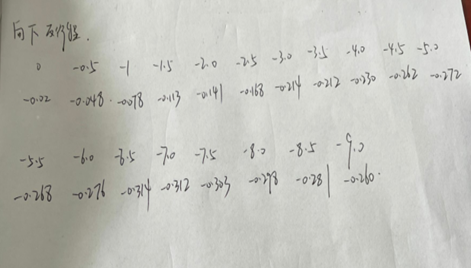 向下
0 -0.5 -1 -1.5 -2.0 -2.5 -3.0 -3.5 -4.0 -4.5 -5.0
-0.02 -0.048 -0.078 -0.113 -0.141 -0.168 -0.214 -0.212 -0.230 -0.262 -0.272
-5.5 -6.0 -6.5 -7.0 -7.5 -8.0 -8.5 -9.0
-0.268 -0.276 -0.314 -0.312 -0.303 -0.298 -0.281 -0.260